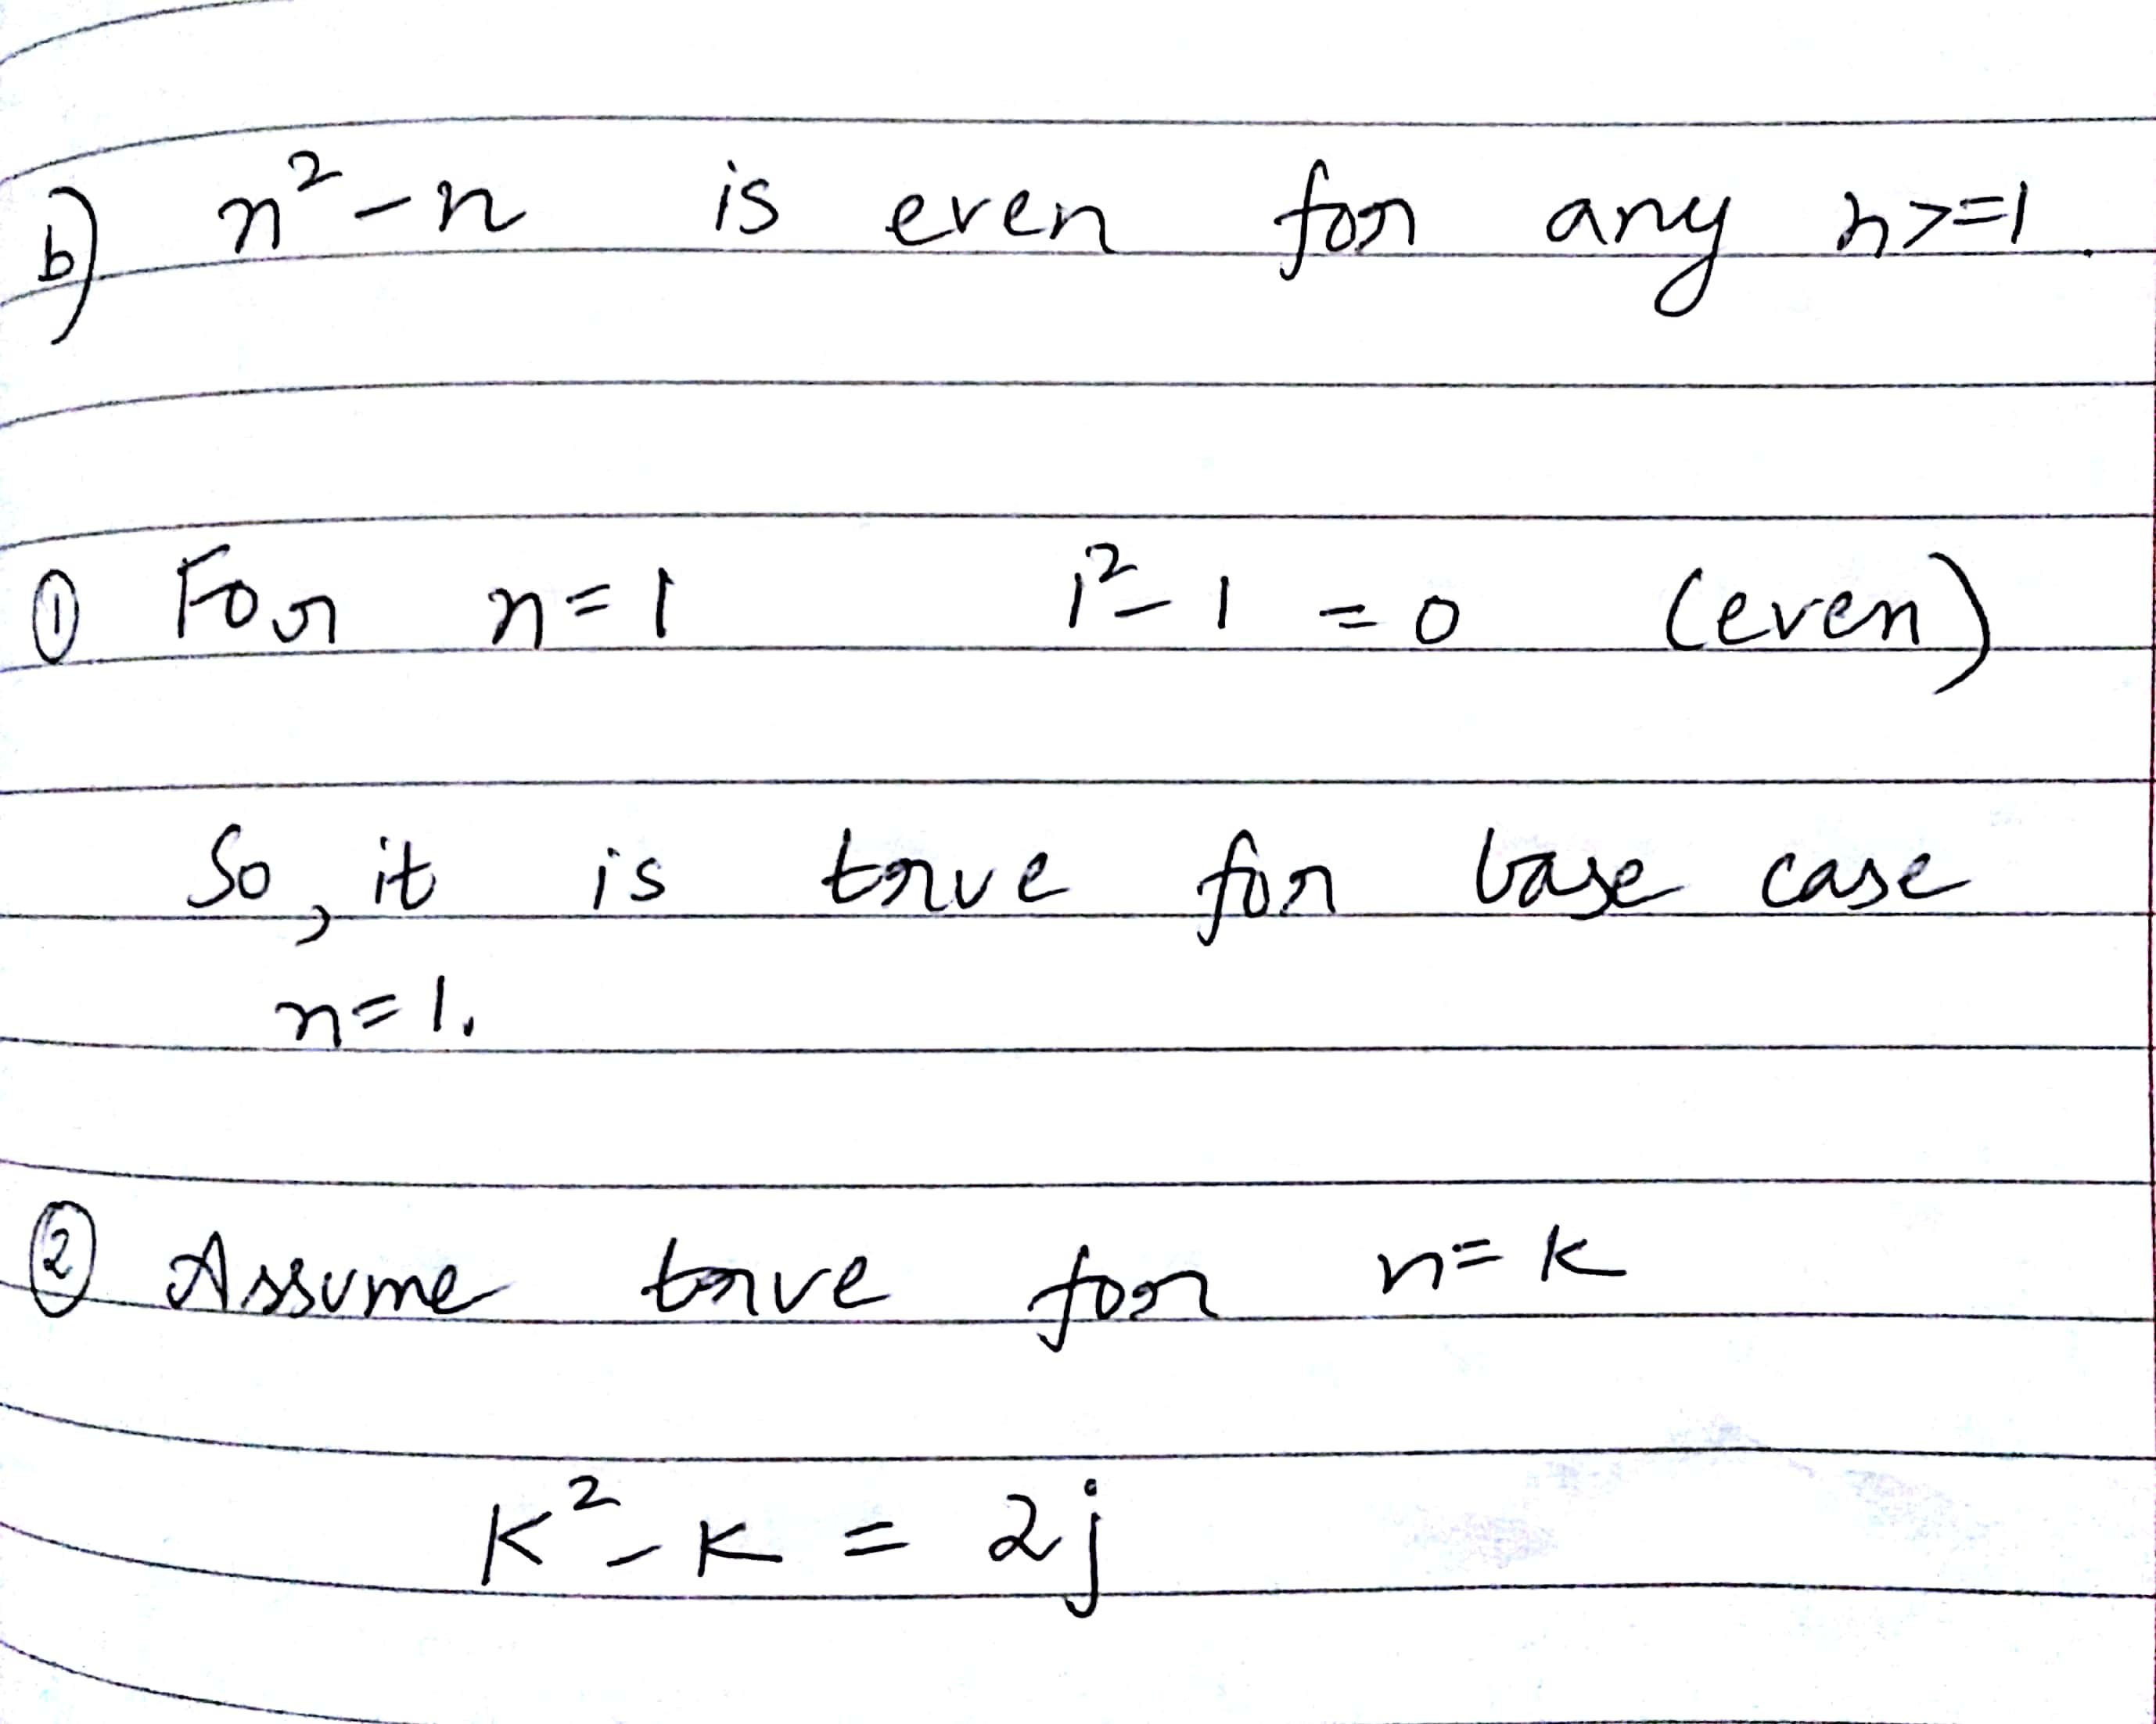 b) n² - n is even for any n>=1.
① For n=1 1² - 1 = 0 (even)
So, it is true for base case
n=1.
② Assume true for n=k
k² - k = 2j